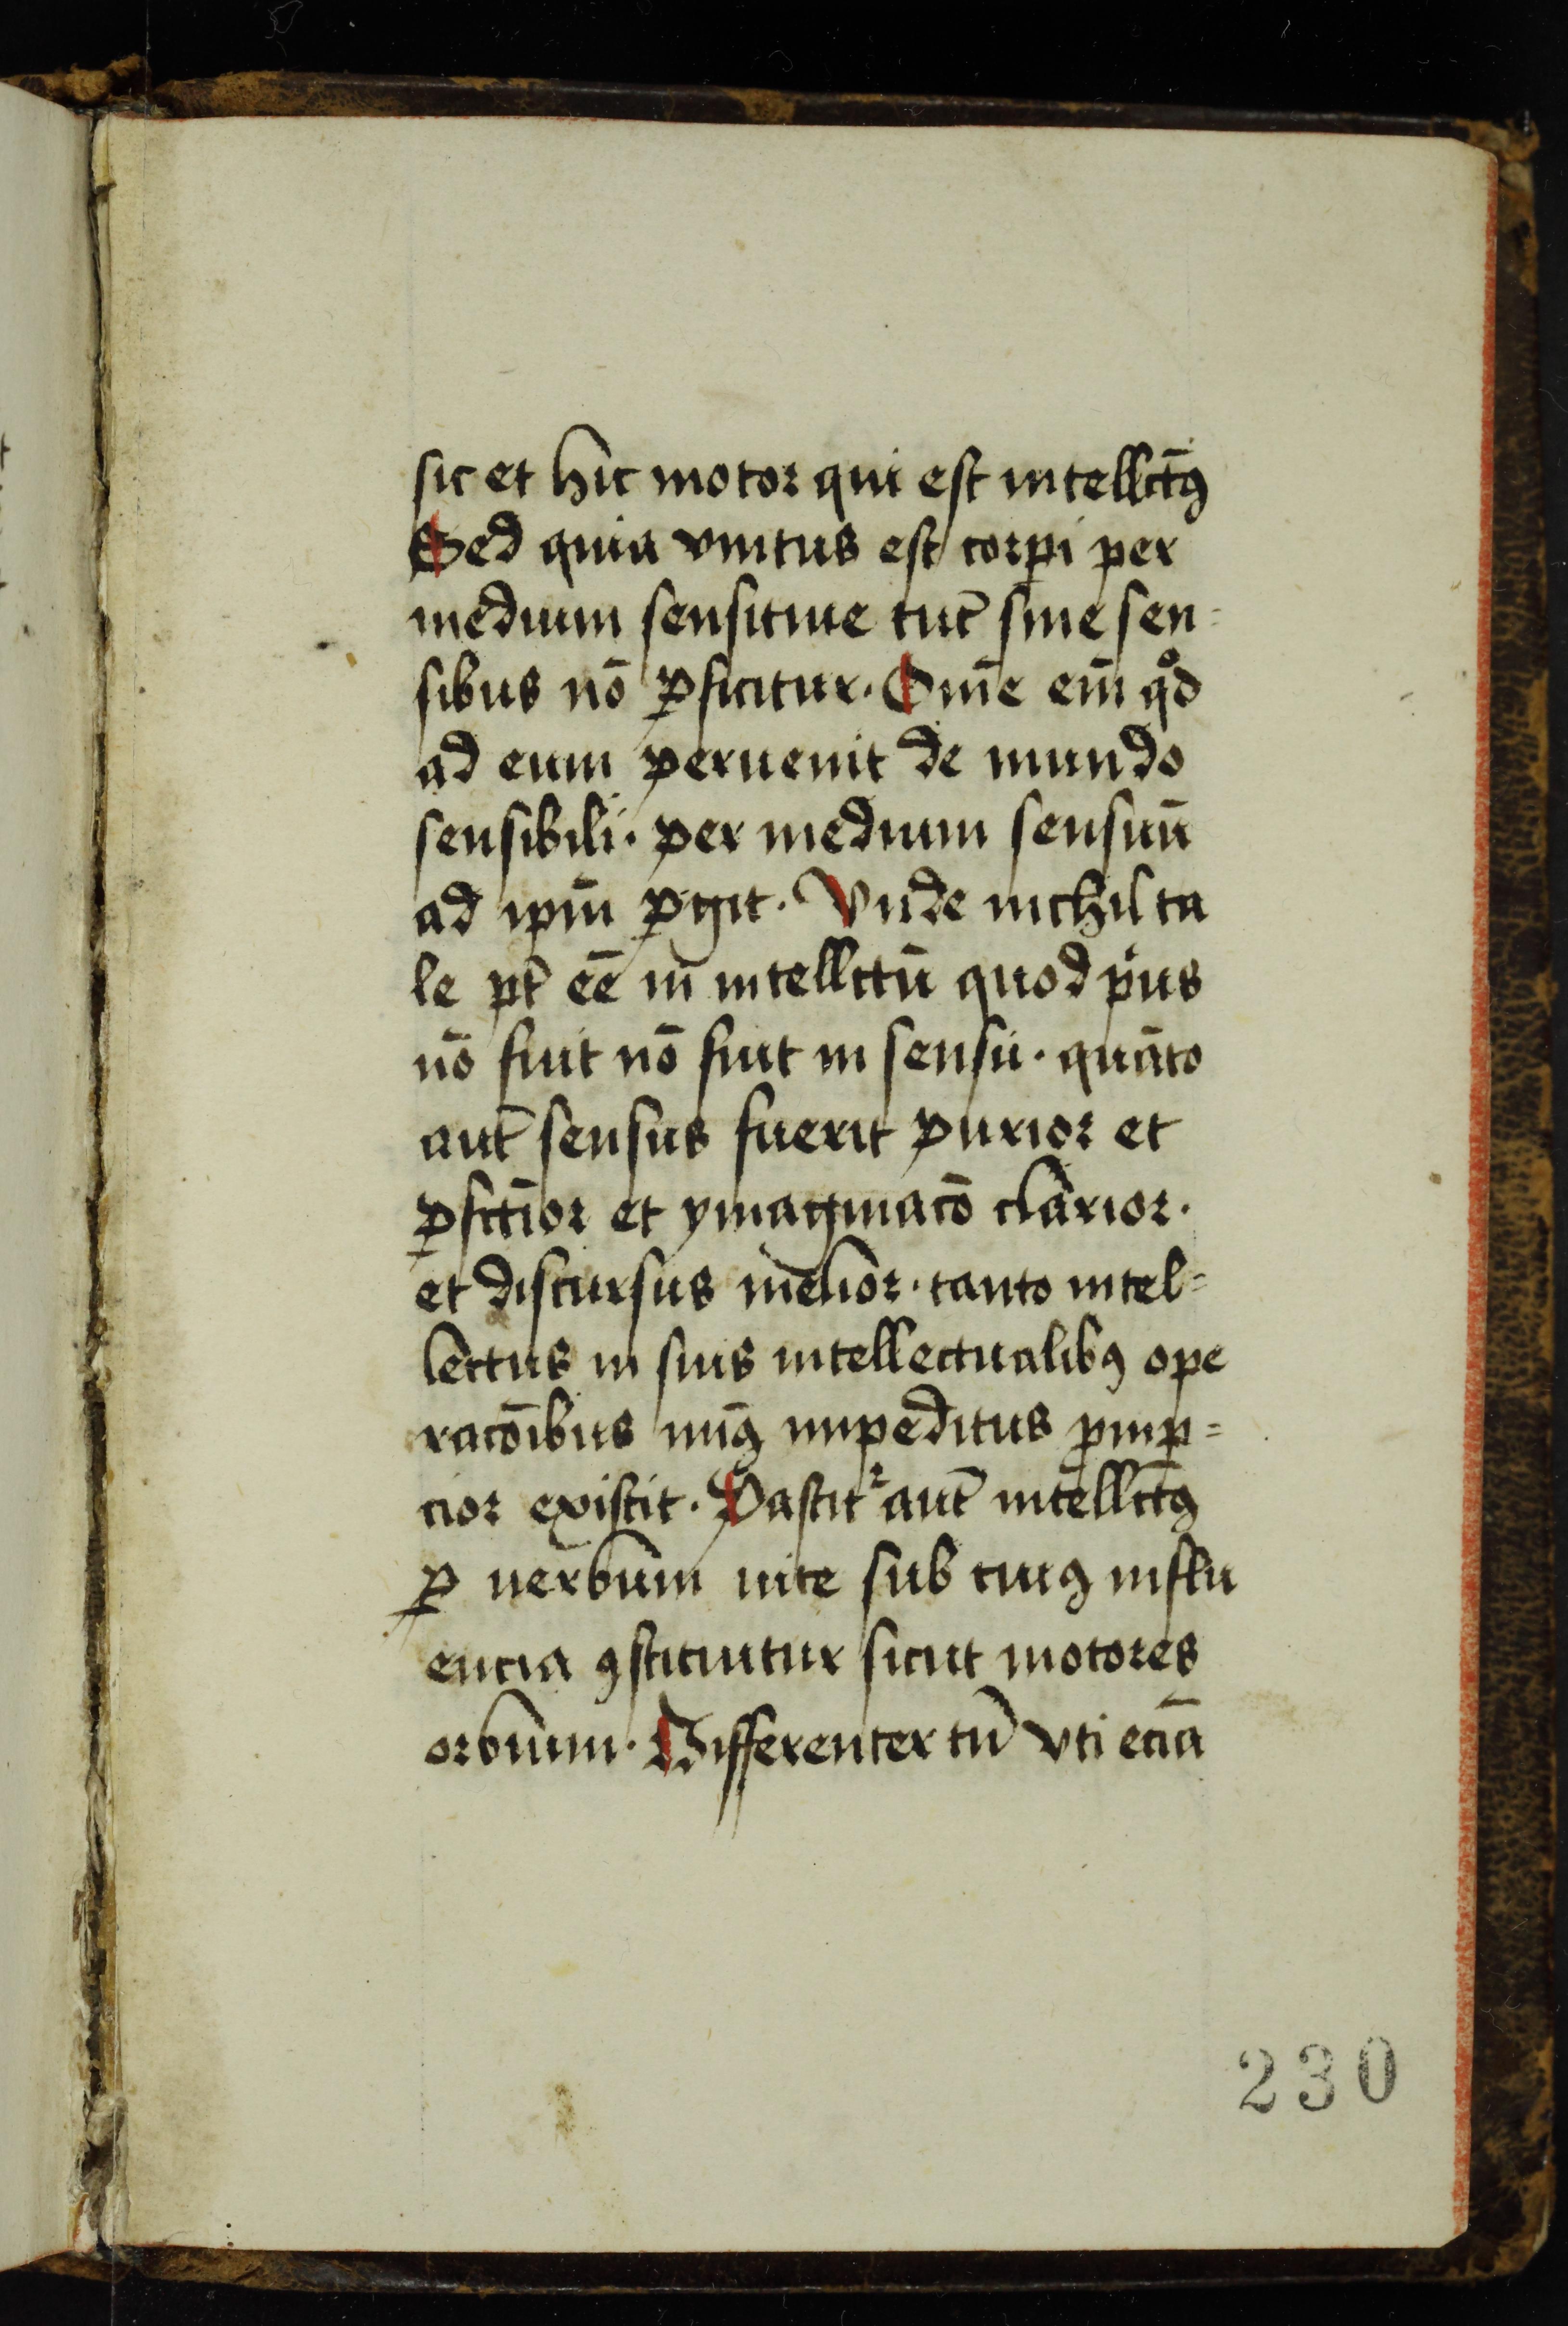 sic et hic motor qui est intellctꝰ
Sed quia vnitus est corpi per
medium sensitiue tūc sine sen=
sibus nō ꝑficitur. Om̄e em̄ qͦd
ad eum peruenit de mundo
sensibili. per medium sensuū
ad ip̄m ꝑgit. Vnde nichil ta
le pt̄ eē in intellctū quod pͥus
nō fuit nō fuit in sensu. quāto
aut̄ sensus fuerit purior et
ꝑfct̄ior et ymaginacō clarior.
et discursus melior. tanto intel=
lectus in suis intellectualibꝰ ope
racōibus minꝰ impeditus ꝓmp=
cior existit. Pascitᷣ aut̄ intellctꝰ
ꝑ uerbum uite sub cuiꝰ influ
encia ꝯstituitur sicut motores
orbium. Differenter tn̄ vti eciā
230